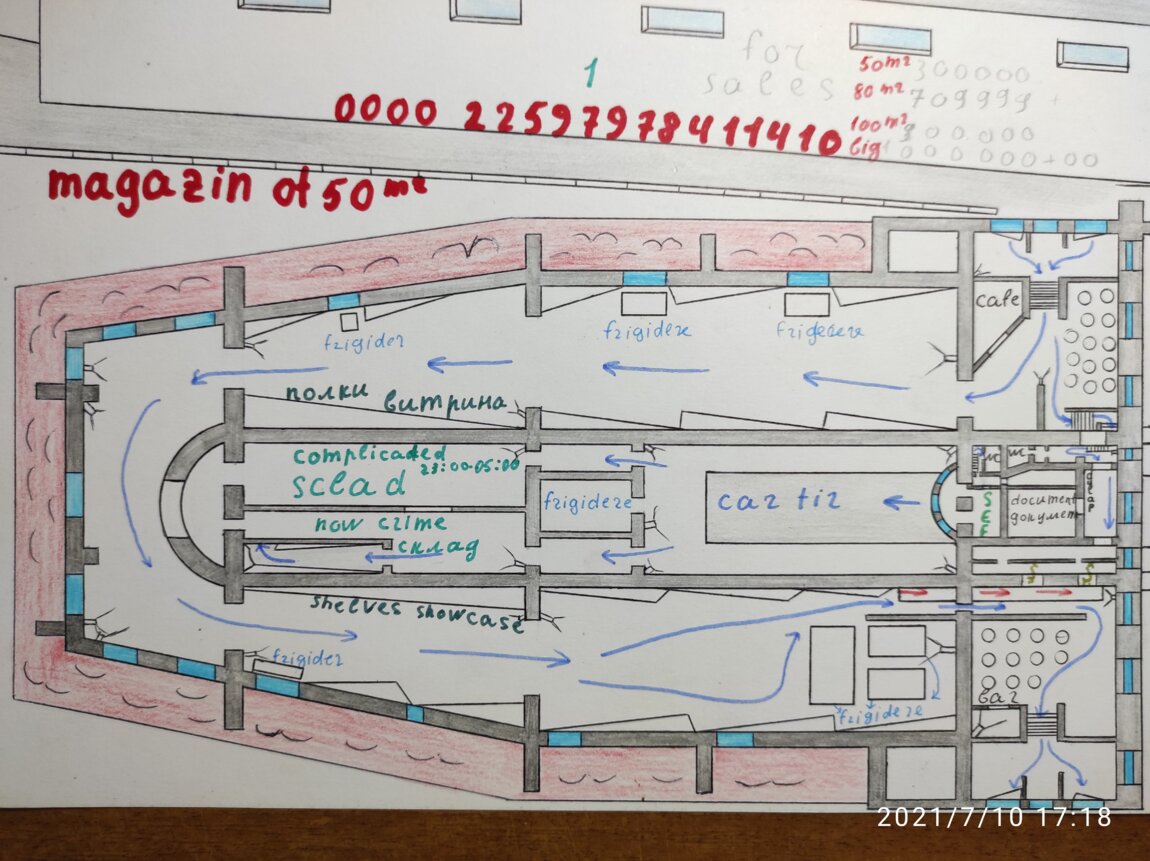 for
sales
1
50m² 300000
80 m² 709999 +
100m² 300.000
big 000 000+00
0000 22597978411410
magazin ot 50 m²
cafe
frigider
frigidere
frigidere
полки витрина
complicaded
23:00-05:00
sclad
now crime
склад
frigidere
cartir
SEF
document
документ
shelves showcase
frigider
frigidere
bar
2021/7/10 17:18